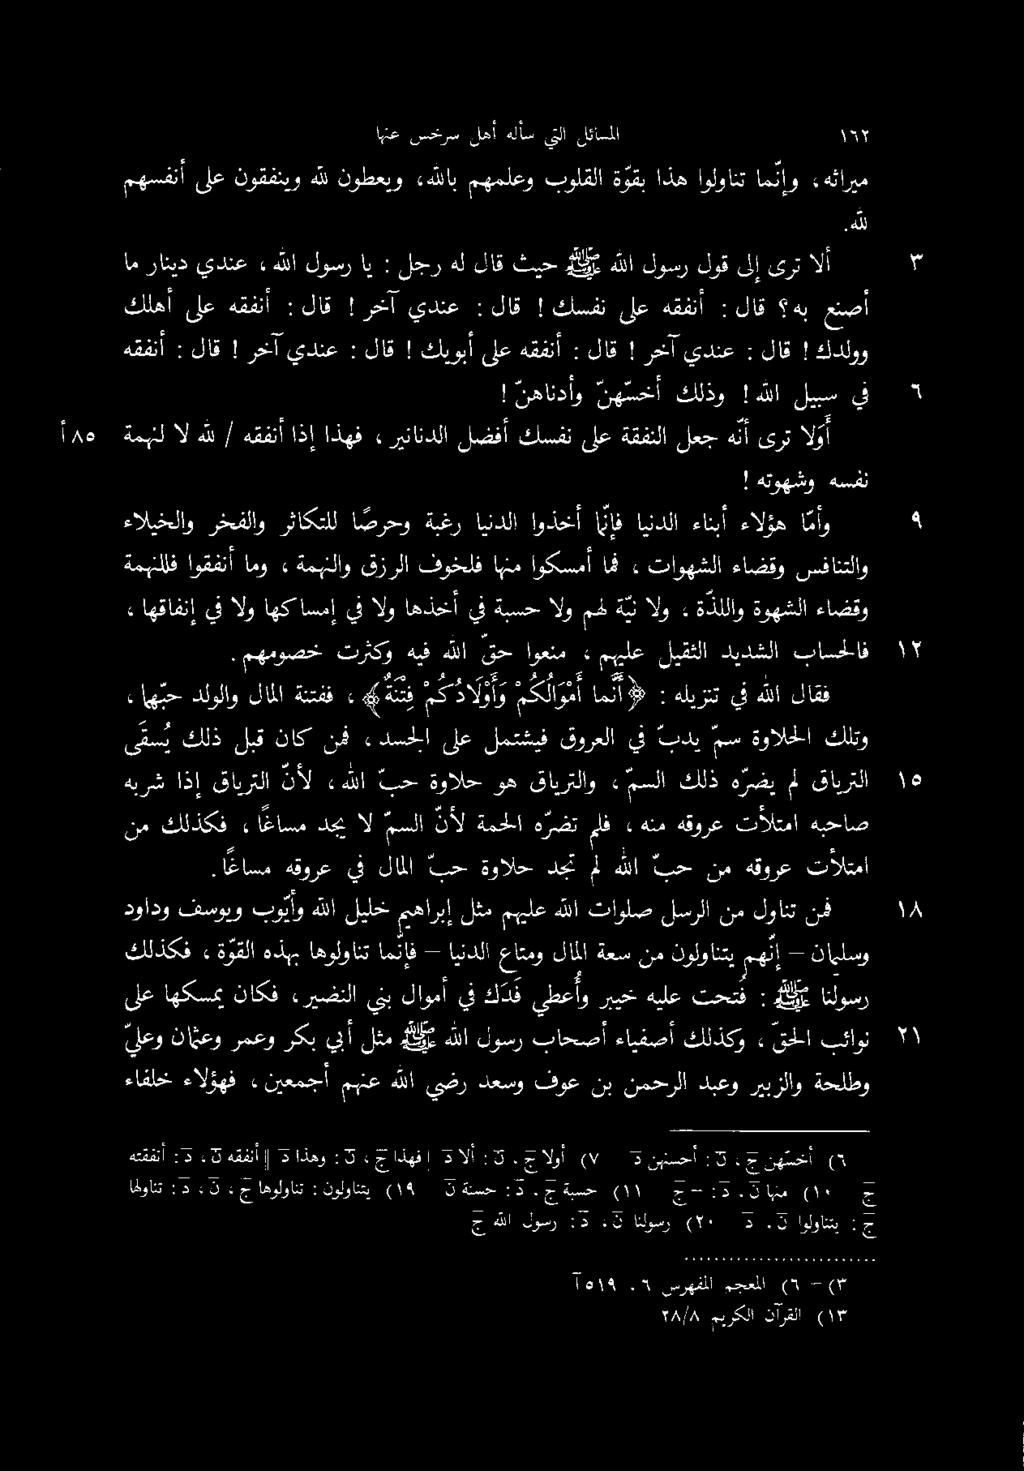 ١٦٢ المسائل التي سأله أهل سرخس عنها
ميراثه ، وإنّما تناولوا هذا بقوّة القلوب وعلمهم بالله، ويعطون لله وينفقون على أنفسهم
لله.
٣ ألا ترى إلى قول رسول الله ﷺ حيث قال له رجل : يا رسول الله ، عندي دينار ما
أصنع به؟ قال : أنفقه على نفسك ! قال : عندي آخر ! قال : أنفقه على أهلك
وولدك ! قال : عندي آخر ! قال : أنفقه على أبويك ! قال : عندي آخر ! قال : أنفقه
٦ في سبيل الله ! وذلك أخسّهنّ وأدناهنّ !
أَوَلا ترى أنّه جعل النفقة على نفسك أفضل الدنانير ، فهذا إذا أنفقه / لله لا لنهمة ٨٥أ
نفسه وشهوته !
٩ وأمّا هؤلاء أبناء الدنيا فإنّما أخذوا الدنيا رغبة وحرصًا للتكاثر والفخر والخيلاء
والتنافس وقضاء الشهوات ، فما أمسكوا منها فلخوف الرزق والنهمة ، وما أنفقوا فللنهمة
وقضاء الشهوة واللذّة ، ولا نيّة لهم ولا حسبة في أخذها ولا في إمساكها ولا في إنفاقها ،
١٢ فالحساب الشديد الثقيل عليهم ، منعوا حقّ الله فيه وكثرت خصومهم .
فقال الله في تنزيله : ﴿أَنَّما أَمْوَالُكُمْ وَأَوْلَادُكُمْ فِتْنَةٌ﴾ ، ففتنة المال والولد حبّهما ،
وتلك الحلاوة سمّ يدبّ في العروق فيشتمل على الجسد ، فمن كان قبل ذلك يُسقَى
١٥ الترياق لم يضرّه ذلك السمّ ، والترياق هو حلاوة حبّ الله ، لأنّ الترياق إذا شربه
صاحبه امتلأت عروقه منه ، فلم تضرّه الحمة لأنّ السمّ لا يجد مساغًا ، فكذلك من
امتلأت عروقه من حبّ الله لم تجد حلاوة حبّ المال في عروقه مساغًا .
١٨ فمن تناول من الرسل صلوات الله عليهم مثل إبراهيم خليل الله وأيّوب ويوسف وداود
وسليمان – إنّهم يتناولون من سعة المال ومتاع الدنيا – فإنّما تناولوها بهذه القوّة ، فكذلك
رسولنا ﷺ : فُتحت عليه خيبر وأُعطي فَدَك في أموال بني النضير ، فكان يمسكها على
٢١ نوائب الحقّ ، وكذلك أصفياء أصحاب رسول الله ﷺ مثل أبي بكر وعمر وعثمان وعليّ
وطلحة والزبير وعبد الرحمن بن عوف وسعد رضي الله عنهم أجمعين ، فهؤلاء خلفاء
٦) أخسّهن ج ، ن : أحسنهن د ٧) أولا ج ، ن : ألا د | فهذا ج ، ن : وهذا د || أنفقه ن ، د : أنفقته
ج ١٠) منها ن ، د : – ج ١١) حسبة ج ، د : حسنة ن ١٩) يتناولون : تناولوها ج ، ن ، د : تناولها
ج : يتناولوا ن ، د ٢٠) رسولنا ن ، د : رسول الله ج
٣) – ٦) المعجم المفهرس ٦ ، ٥١٩آ
١٣) القرآن الكريم ٢٨/٨